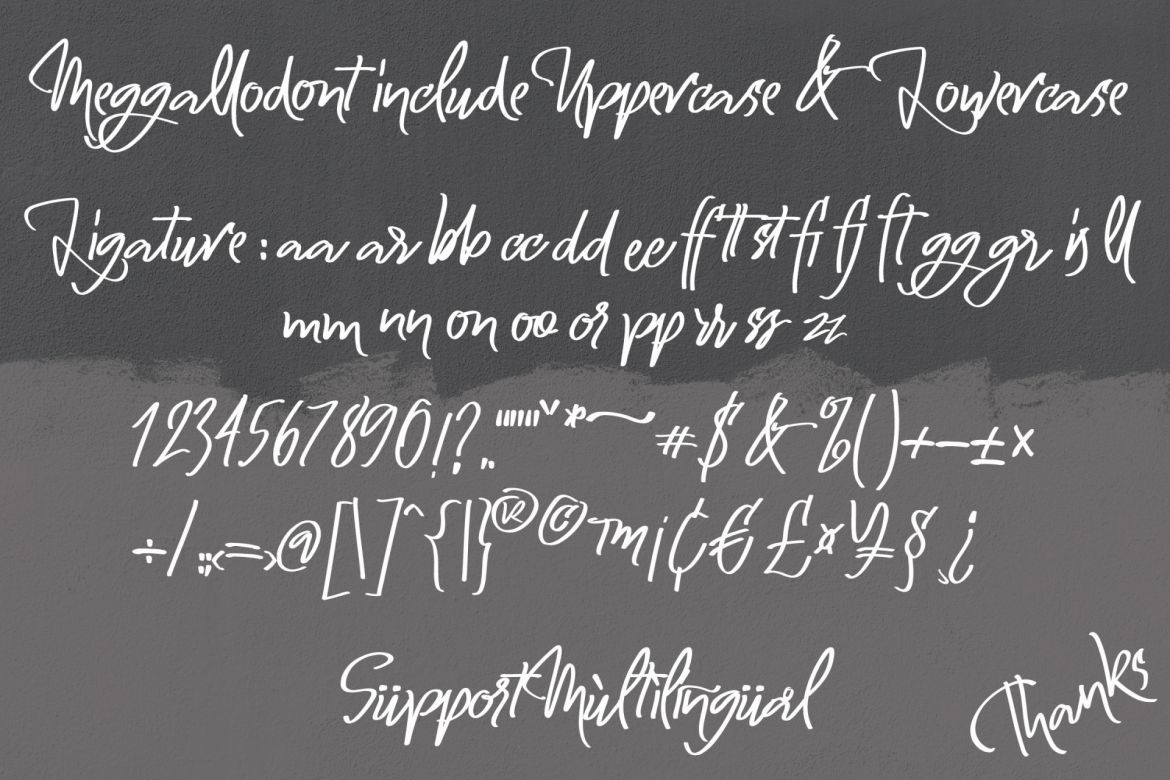 Meggallodont include Uppercase & Lowercase
Ligature : aa ar bb cc dd ee ff tt st fi fj ft gg gr is ll
mm nn on oo or pp rr ss zz
1234567890!? "" * ~ # $ & % ( ) + - ± ×
÷ / : ; < = > @ [ \ ] ^ { | } ® © ™ ¡ ¢ € £ ¤ ¥ § ¿
Süpport Mùltilingüal
Thanks